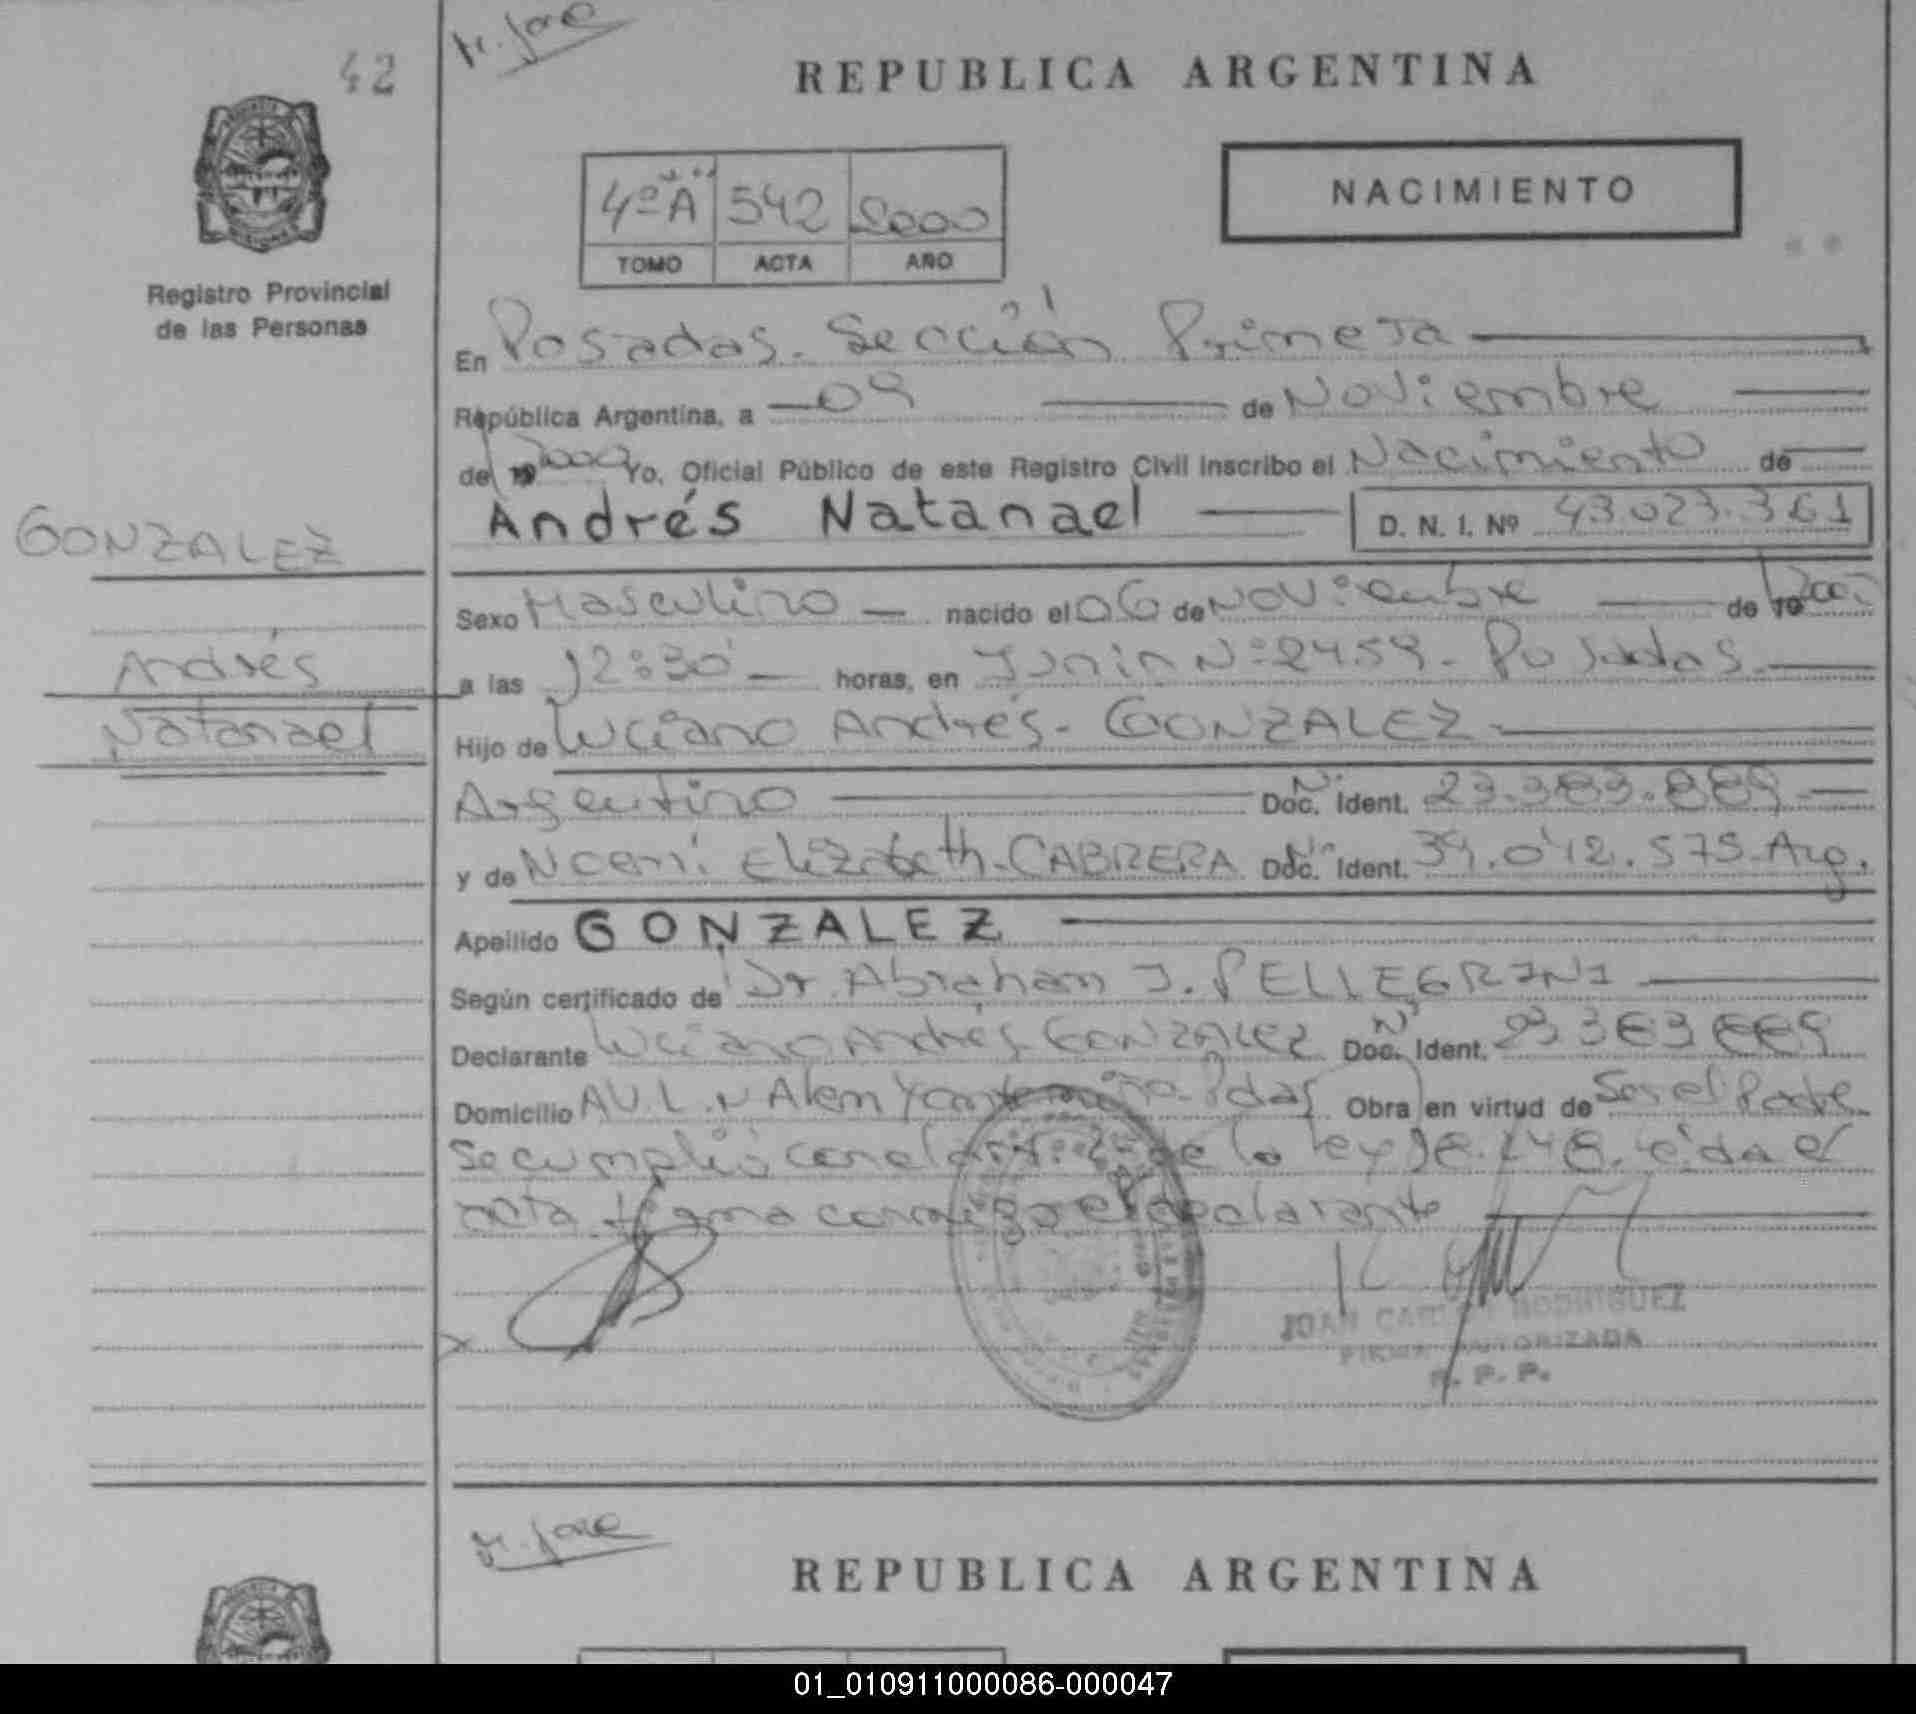 42
Mr. Jose
REPUBLICA ARGENTINA
4ºA 542 2000
TOMO ACTA AÑO
NACIMIENTO
Registro Provincial
de las Personas
En Posadas. Sección Primera
República Argentina, a 09 de Noviembre
de 19 2000 Yo, Oficial Público de este Registro Civil inscribo el Nacimiento de
Andrés Natanael D. N. I. Nº 43.023.361
GONZALEZ
Andrés
Natanael
Sexo Masculino nacido el 06 de Noviembre de 19 2000
a las 12:30 horas, en Junin Nº 2459. Posadas
Hijo de Luciano Andrés. GONZALEZ
Argentino Doc. Nº Ident. 23.383.889
y de Noemi Elizabeth. CABRERA Doc. Nº Ident. 34.012.575 Arg.
Apellido GONZALEZ
Según certificado de Dr. Abraham J. PELLEGRINI
Declarante Luciano Andrés GONZALEZ Doc. Nº Ident. 23383889
Domicilio AV. L. N Alem Y Pdas Obra en virtud de Ser el Padre
Se cumplió con el art: 2º de la ley 18.248. leida el
acta firma conmigo el declarante
x
JUAN CARLOS RODRIGUEZ
FIRMA AUTORIZADA
R. P. P.
Mr. Jose
REPUBLICA ARGENTINA
01_010911000086-000047